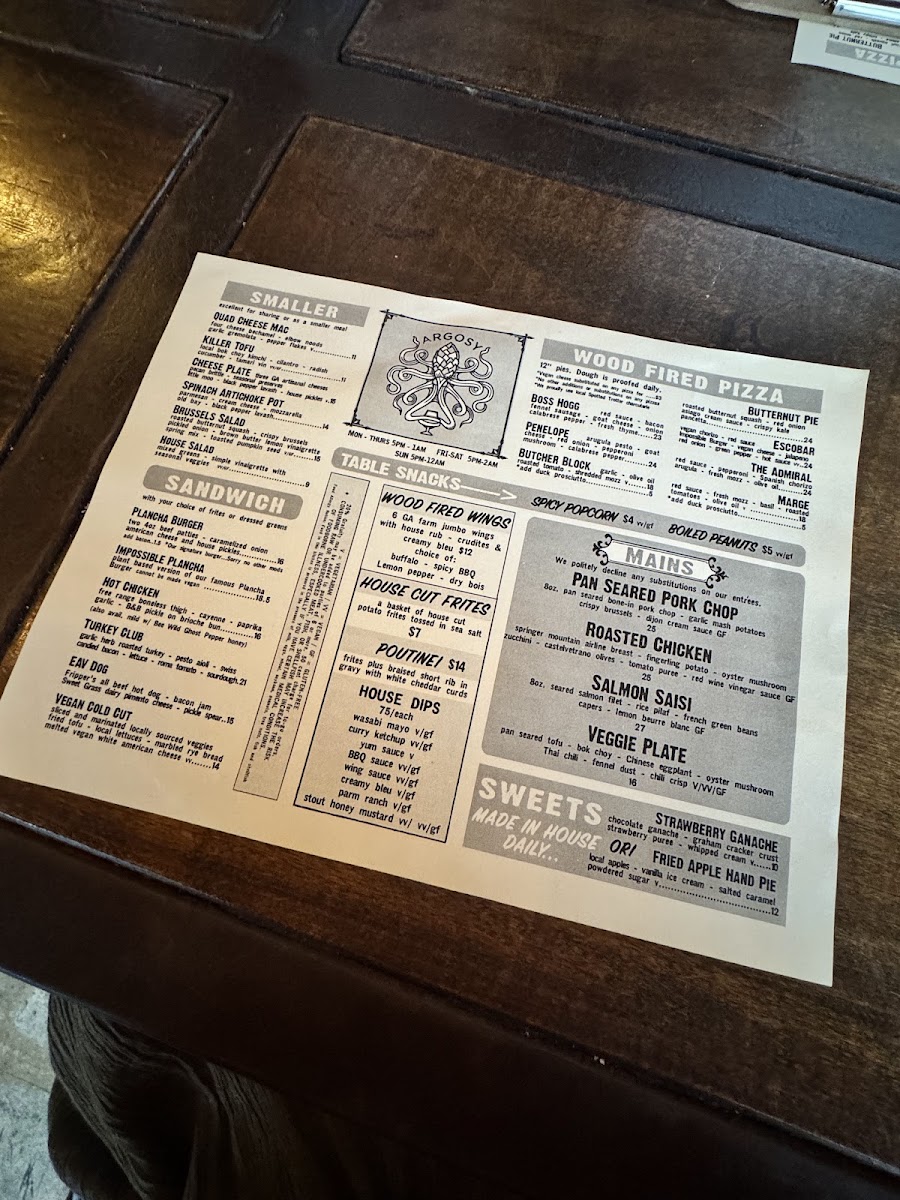 SMALLER
excellent for sharing or as a smaller meal
QUAD CHEESE MAC
four cheese bechamel - elbow noods
garlic gremolata - pepper flakes v.....11
KILLER TOFU
local bok choy kimchi - cilantro - radish
cucumber - tamari vin .....11
CHEESE PLATE three GA artisanal cheeses
pecan brittle - seasonal preserves
- black pepper lavash - house pickles .15
SPINACH ARTICHOKE POT
parmesan - cream cheese - mozzarella
old bay - black pepper lavash.....14
BRUSSELS SALAD
roasted butternut squash - crispy brussels
pickled onion - brown butter vinaigrette
spring mix - toasted pumpkin seed
HOUSE SALAD
mixed greens - simple vinaigrette with
seasonal veggies .....9
SANDWICH
with your choice of frites or dressed greens
PLANCHA BURGER
two 4oz beef patties - caramelized onion
american cheese and house pickles.....16
add bacon. 1.5 "Our signature burger...Sorry no other mods
IMPOSSIBLE PLANCHA
plant based version of our famous Plancha
Burger cannot be made vegan.....18.5
HOT CHICKEN
free range boneless thigh - cayenne - paprika
garlic - B&B pickle on brioche bun.....16
(also avail. mild w/ Bee Wild Ghost Pepper honey)
TURKEY CLUB
garlic herb roasted turkey - pesto aioli - swiss
candied bacon - lettuce - roma tomato - sourdough.21
EAV DOG
Fripper's all beef hot dog - bacon jam
Sweet Grass dairy pimento cheese - pickle spear..15
VEGAN COLD CUT
sliced and marinated locally sourced veggies
fried tofu - local lettuces - marbled rye bread
melted vegan white american cheese vv.....14
ARGOSY
MON - THURS 5PM - 1AM FRI-SAT 5PM-2AM
SUN 5PM-12AM
TABLE SNACKS
SPICY POPCORN $4 vv/gf
BOILED PEANUTS $5 vv/gf
WOOD FIRED WINGS
6 GA farm jumbo wings
with house rub - crudites &
creamy bleu $12
choice of:
buffalo - spicy BBQ
Lemon pepper - dry bois
HOUSE CUT FRITES
a basket of house cut
potato frites tossed in sea salt
$7
POUTINE! $14
frites plus braised short rib in
gravy with white cheddar curds
HOUSE DIPS
75/each
wasabi mayo v/gf
curry ketchup vv/gf
yum sauce v
BBQ sauce vv/gf
wing sauce vv/gf
creamy bleu v/gf
parm ranch v/gf
stout honey mustard vv/ vv/gf
WOOD FIRED PIZZA
12" pies. Dough is proofed daily.
BOSS HOGG red sauce - bacon
fennel sausage - goat cheese - onion
calabrese pepper - fresh thyme....23
PENELOPE arugula pesto - goat
cheese - red onion - pepperoni
mushroom - calabrese pepper.....24
BUTCHER BLOCK garlic - olive oil
roasted tomato - shredded mozz v.....18
*add duck prosciutto.....5
BUTTERNUT PIE
roasted butternut squash - red onion
asiago cream sauce - crispy kale
pancetta.....24
ESCOBAR
vegan chorizo - red sauce
Impossible Burger - vegan cheese - jalapeno
red onion - green pepper - hot sauce vv..24
THE ADMIRAL
red sauce - pepperoni - Spanish chorizo
arugula - fresh mozz - olive oil.....24
MARGE
red sauce - fresh mozz - basil - roasted
tomatoes - olive oil v.....18
*add duck prosciutto.....5
MAINS
We politely decline any substitutions on our entrées.
PAN SEARED PORK CHOP
8oz. pan seared bone-in pork chop - garlic mash potatoes
crispy brussels - dijon cream sauce GF
25
ROASTED CHICKEN
springer mountain airline breast - fingerling potato - oyster mushroom
zucchini - castelvetrano olives - tomato puree - red wine vinegar sauce GF
25
SALMON SAISI
8oz. seared salmon filet - rice pilaf - french green beans
capers - lemon beurre blanc GF
27
VEGGIE PLATE
pan seared tofu - bok choy - Chinese eggplant - oyster mushroom
Thai chili - fennel dust - chili crisp V/VV/GF
16
SWEETS
MADE IN HOUSE
DAILY...
STRAWBERRY GANACHE
chocolate ganache - graham cracker crust
strawberry puree - whipped cream v.....10
OR!
FRIED APPLE HAND PIE
local apples - vanilla ice cream - salted caramel
powdered sugar v.....12
PIZZA
BUTTERNUT PIE